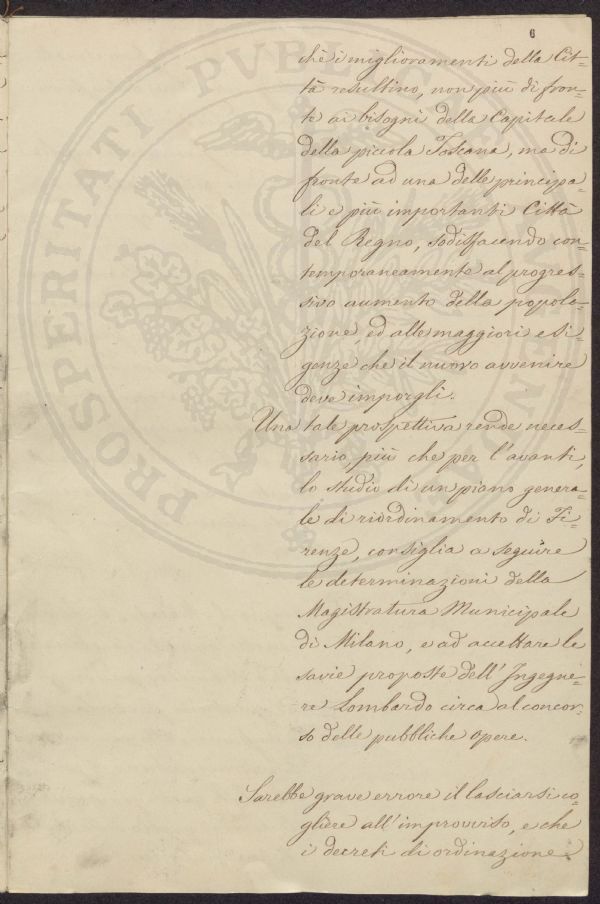 6
chè i miglioramenti della Cit=
tà resultino, non più di fron=
te ai bisogni della Capitale
della piccola Toscana, ma di
fronte ad una delle principa=
li e più importanti Città
del Regno, sodisfacendo con=
temporaneamente al progres=
sivo aumento della popola=
zione, ed alle maggiori esi=
genze che il nuovo avvenire
deve imporgli.
Una tale prospettiva rende neces=
sario, più che per l'avanti,
lo studio di un piano genera=
le di riordinamento di Fi=
renze, consiglia a seguire
le determinazioni della
Magistratura Municipale
di Milano, e ad accettare le
savie proposte dell'Ingegne=
re Lombardo circa al concor=
so delle pubbliche opere.
Sarebbe grave errore il lasciarsi co=
gliere all'improvviso, e che
i decreti di ordinazione
PROSPERITATI PUBLICAE